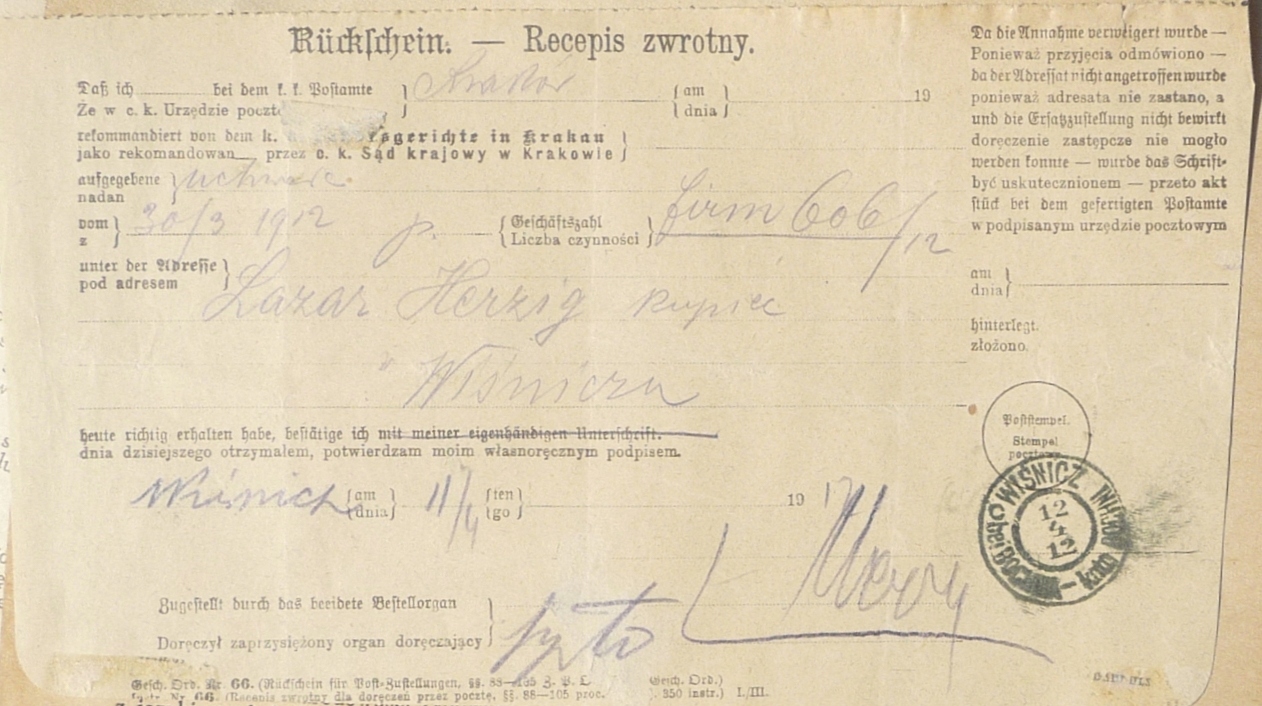 Rückschein. — Recepis zwrotny.
Daß ich bei dem k. k. Postamte } Kraków { am 19
Że w c. k. Urzędzie poczt { dnia
rekommandiert von dem k. sgerichte in Krakau }
jako rekomandowan przez c. k. Sąd krajowy w Krakowie }
aufgegebene }
nadan
vom } 30/3 1912 p. { Geschäftszahl } firm 606/12
z { Liczba czynności
unter der Adresse }
pod adresem
Lazar Herzig kupiec
Wiśniczu
heute richtig erhalten habe, bestätige ich mit meiner eigenhändigen Unterschrift.
dnia dzisiejszego otrzymałem, potwierdzam moim własnoręcznym podpisem.
Wiśnicz { am } 11/4 { ten } 19 12
{ dnia } { go }
Zugestellt durch das beeidete Bestellorgan }
Doręczył zaprzysiężony organ doręczający }
Gesch. Ord. Nr. 66. (Rückschein für Post-Zustellungen, §§. 88—105 Z. P. Gesch. Ord.)
Nr. 66. (Recepis zwrotny dla doręczeń przez pocztę, §§. 88—105 proc. 350 instr.) I./III.
Da die Annahme verweigert wurde —
Ponieważ przyjęcia odmówiono —
da der Adressat nicht angetroffen wurde
ponieważ adresata nie zastano, a
und die Ersatzzustellung nicht bewirkt
doręczenie zastępcze nie mogło
werden konnte — wurde das Schrift-
być uskutecznionem — przeto akt
stück bei dem gefertigten Postamte
w podpisanym urzędzie pocztowym
am }
dnia }
hinterlegt.
złożono.
Poststempel.
Stempel
pocztowy.
WIŚNICZ
12
4
12